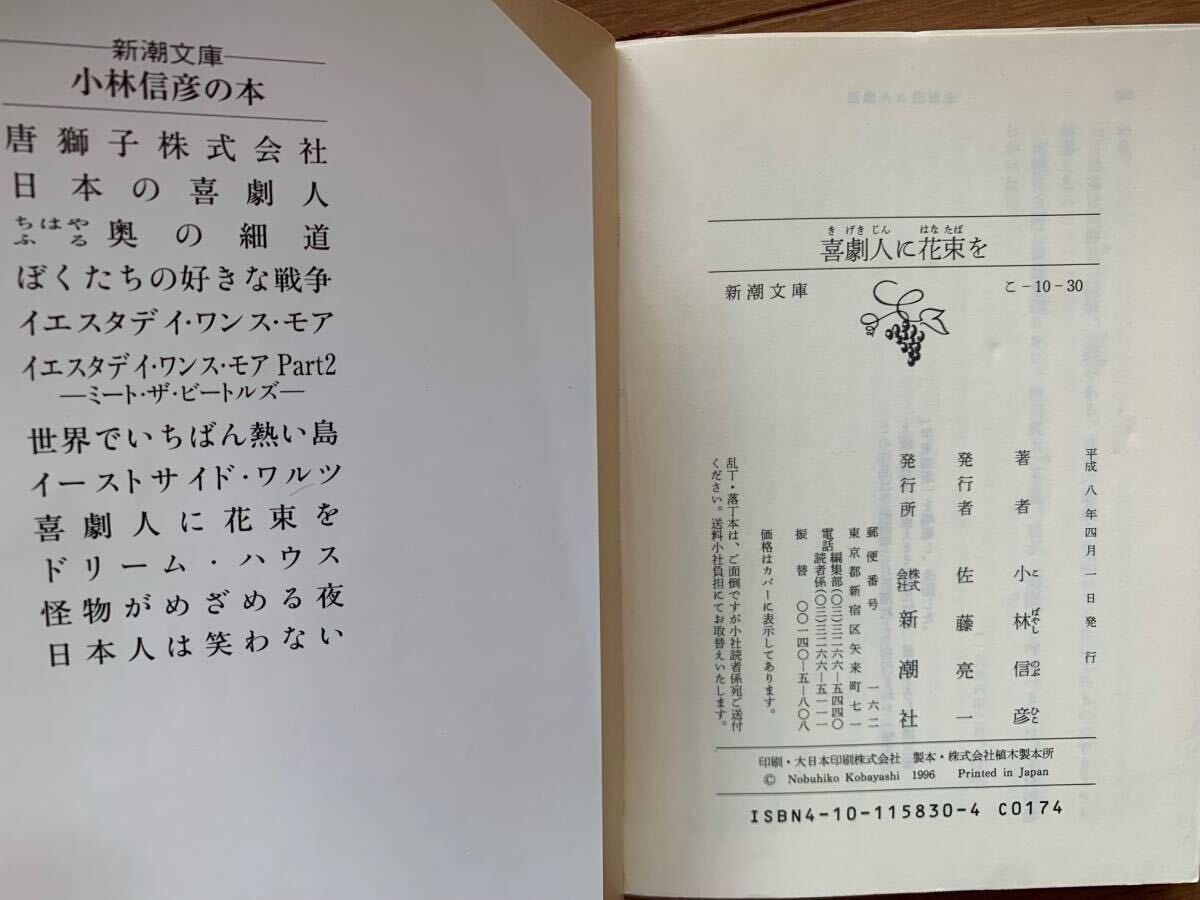 新潮文庫
小林信彦の本
唐獅子株式会社
日本の喜劇人
ちはやふる奥の細道
ぼくたちの好きな戦争
イエスタデイ・ワンス・モア
イエスタデイ・ワンス・モア Part2
―ミート・ザ・ビートルズ―
世界でいちばん熱い島
イーストサイド・ワルツ
喜劇人に花束を
ドリーム・ハウス
怪物がめざめる夜
日本人は笑わない
き げき じん はな たば
喜劇人に花束を
新潮文庫 こ-10-30
平成八年四月一日発行
著者 小林信彦
こ ばやし のぶ ひこ
発行者 佐藤亮一
発行所 株式会社 新潮社
郵便番号 一六二
東京都新宿区矢来町七一
電話 編集部(〇三)三二六六―五四四〇
読者係(〇三)三二六六―五一一一
振替 〇〇一四〇―五―八〇八
価格はカバーに表示してあります。
乱丁・落丁本は、ご面倒ですが小社読者係宛ご送付
ください。送料小社負担にてお取替えいたします。
印刷・大日本印刷株式会社 製本・株式会社植木製本所
© Nobuhiko Kobayashi 1996 Printed in Japan
ISBN4-10-115830-4 C0174